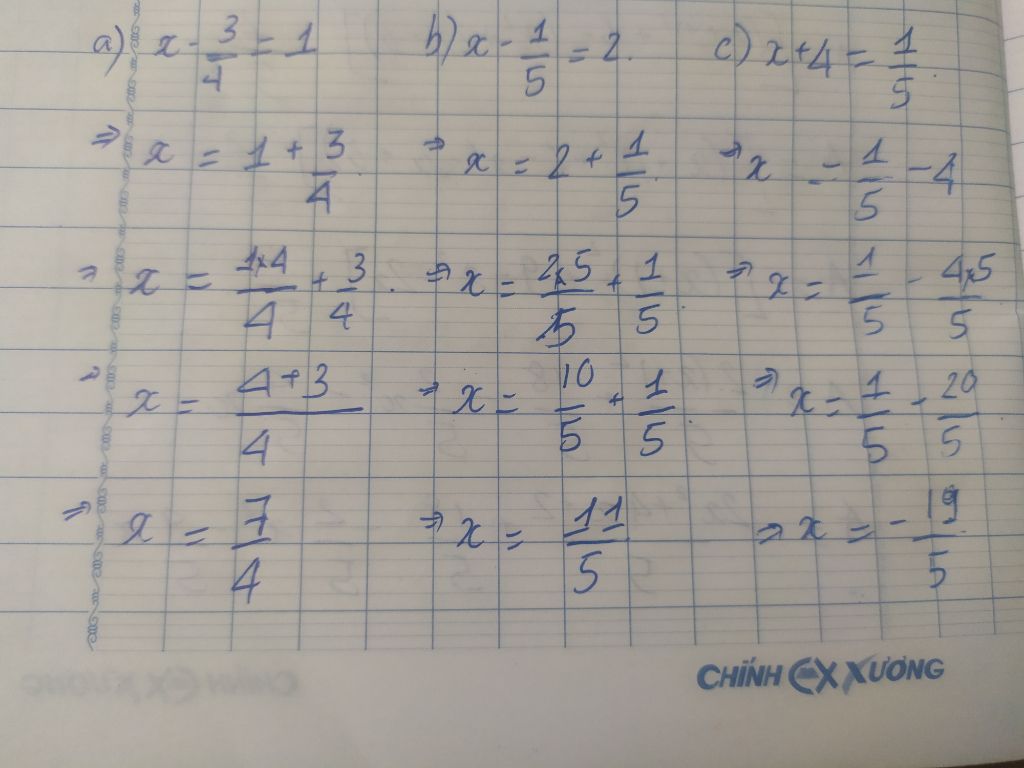 a) x - 3/4 = 1 b) x - 1/5 = 2. c) x + 4 = 1/5
⇒ x = 1 + 3/4 ⇒ x = 2 + 1/5 ⇒ x = 1/5 - 4
⇒ x = 1x4/4 + 3/4. ⇒ x = 2x5/5 + 1/5 ⇒ x = 1/5 - 4x5/5
⇒ x = 4+3/4 ⇒ x = 10/5 + 1/5 ⇒ x = 1/5 - 20/5
⇒ x = 7/4 ⇒ x = 11/5 ⇒ x = -19/5
CHÍNH EX XƯƠNG